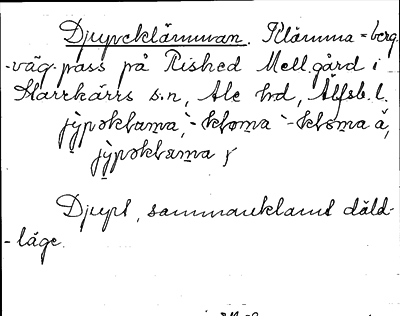 Djupeklämman. Klämma = berg
-väg. pass på Rished Mell.gård i
Starrkärrs s:n, Ale hd, Älfsb. l.
jỳpəkłama, -kłoma -kłoma ä,
jỳpəkłama γ
Djupt, sammanklämt däld-
-läge.